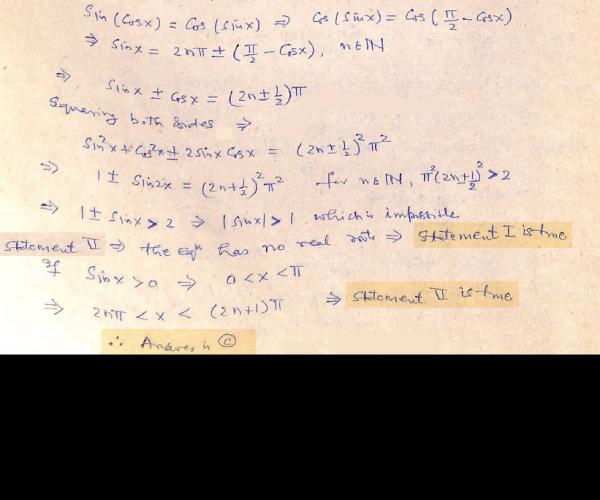 Sin (Cosx) = Cos (Sinx) ⇒ Cos (Sinx) = Cos (π/2 - Cosx)
⇒ Sinx = 2nπ ± (π/2 - Cosx), n∈IN
⇒ Sinx ± Cosx = (2n ± 1/2)π
Squaring both sides ⇒
Sin²x + Cos²x ± 2Sinx Cosx = (2n ± 1/2)²π²
⇒ 1 ± Sin2x = (2n + 1/2)²π² for n∈IN, π²(2n+1/2)² > 2
⇒ 1 ± Sinx > 2 ⇒ |Sinx| > 1 which is impossible
Statement II ⇒ the eqⁿ has no real roots ⇒ Statement I is true
If Sinx > 0 ⇒ 0 < x < π
⇒ 2nπ < x < (2n+1)π ⇒ Statement II is true
∴ Answer is Ⓒ